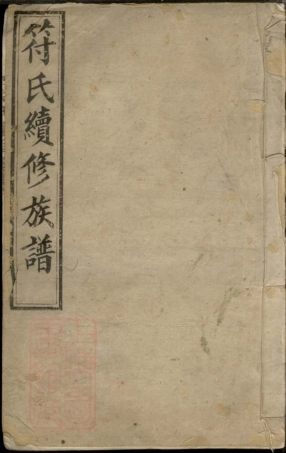 符氏續修族譜